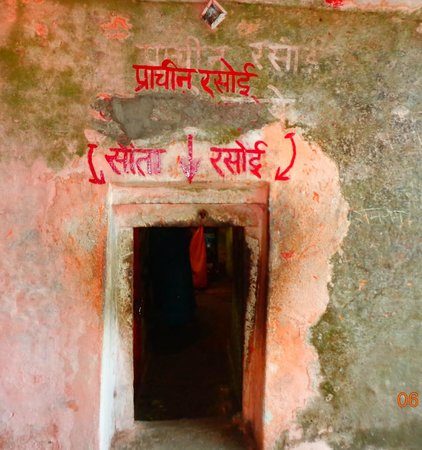 प्राचीन रसोई
प्राचीन रसोई
सीता रसोई
06